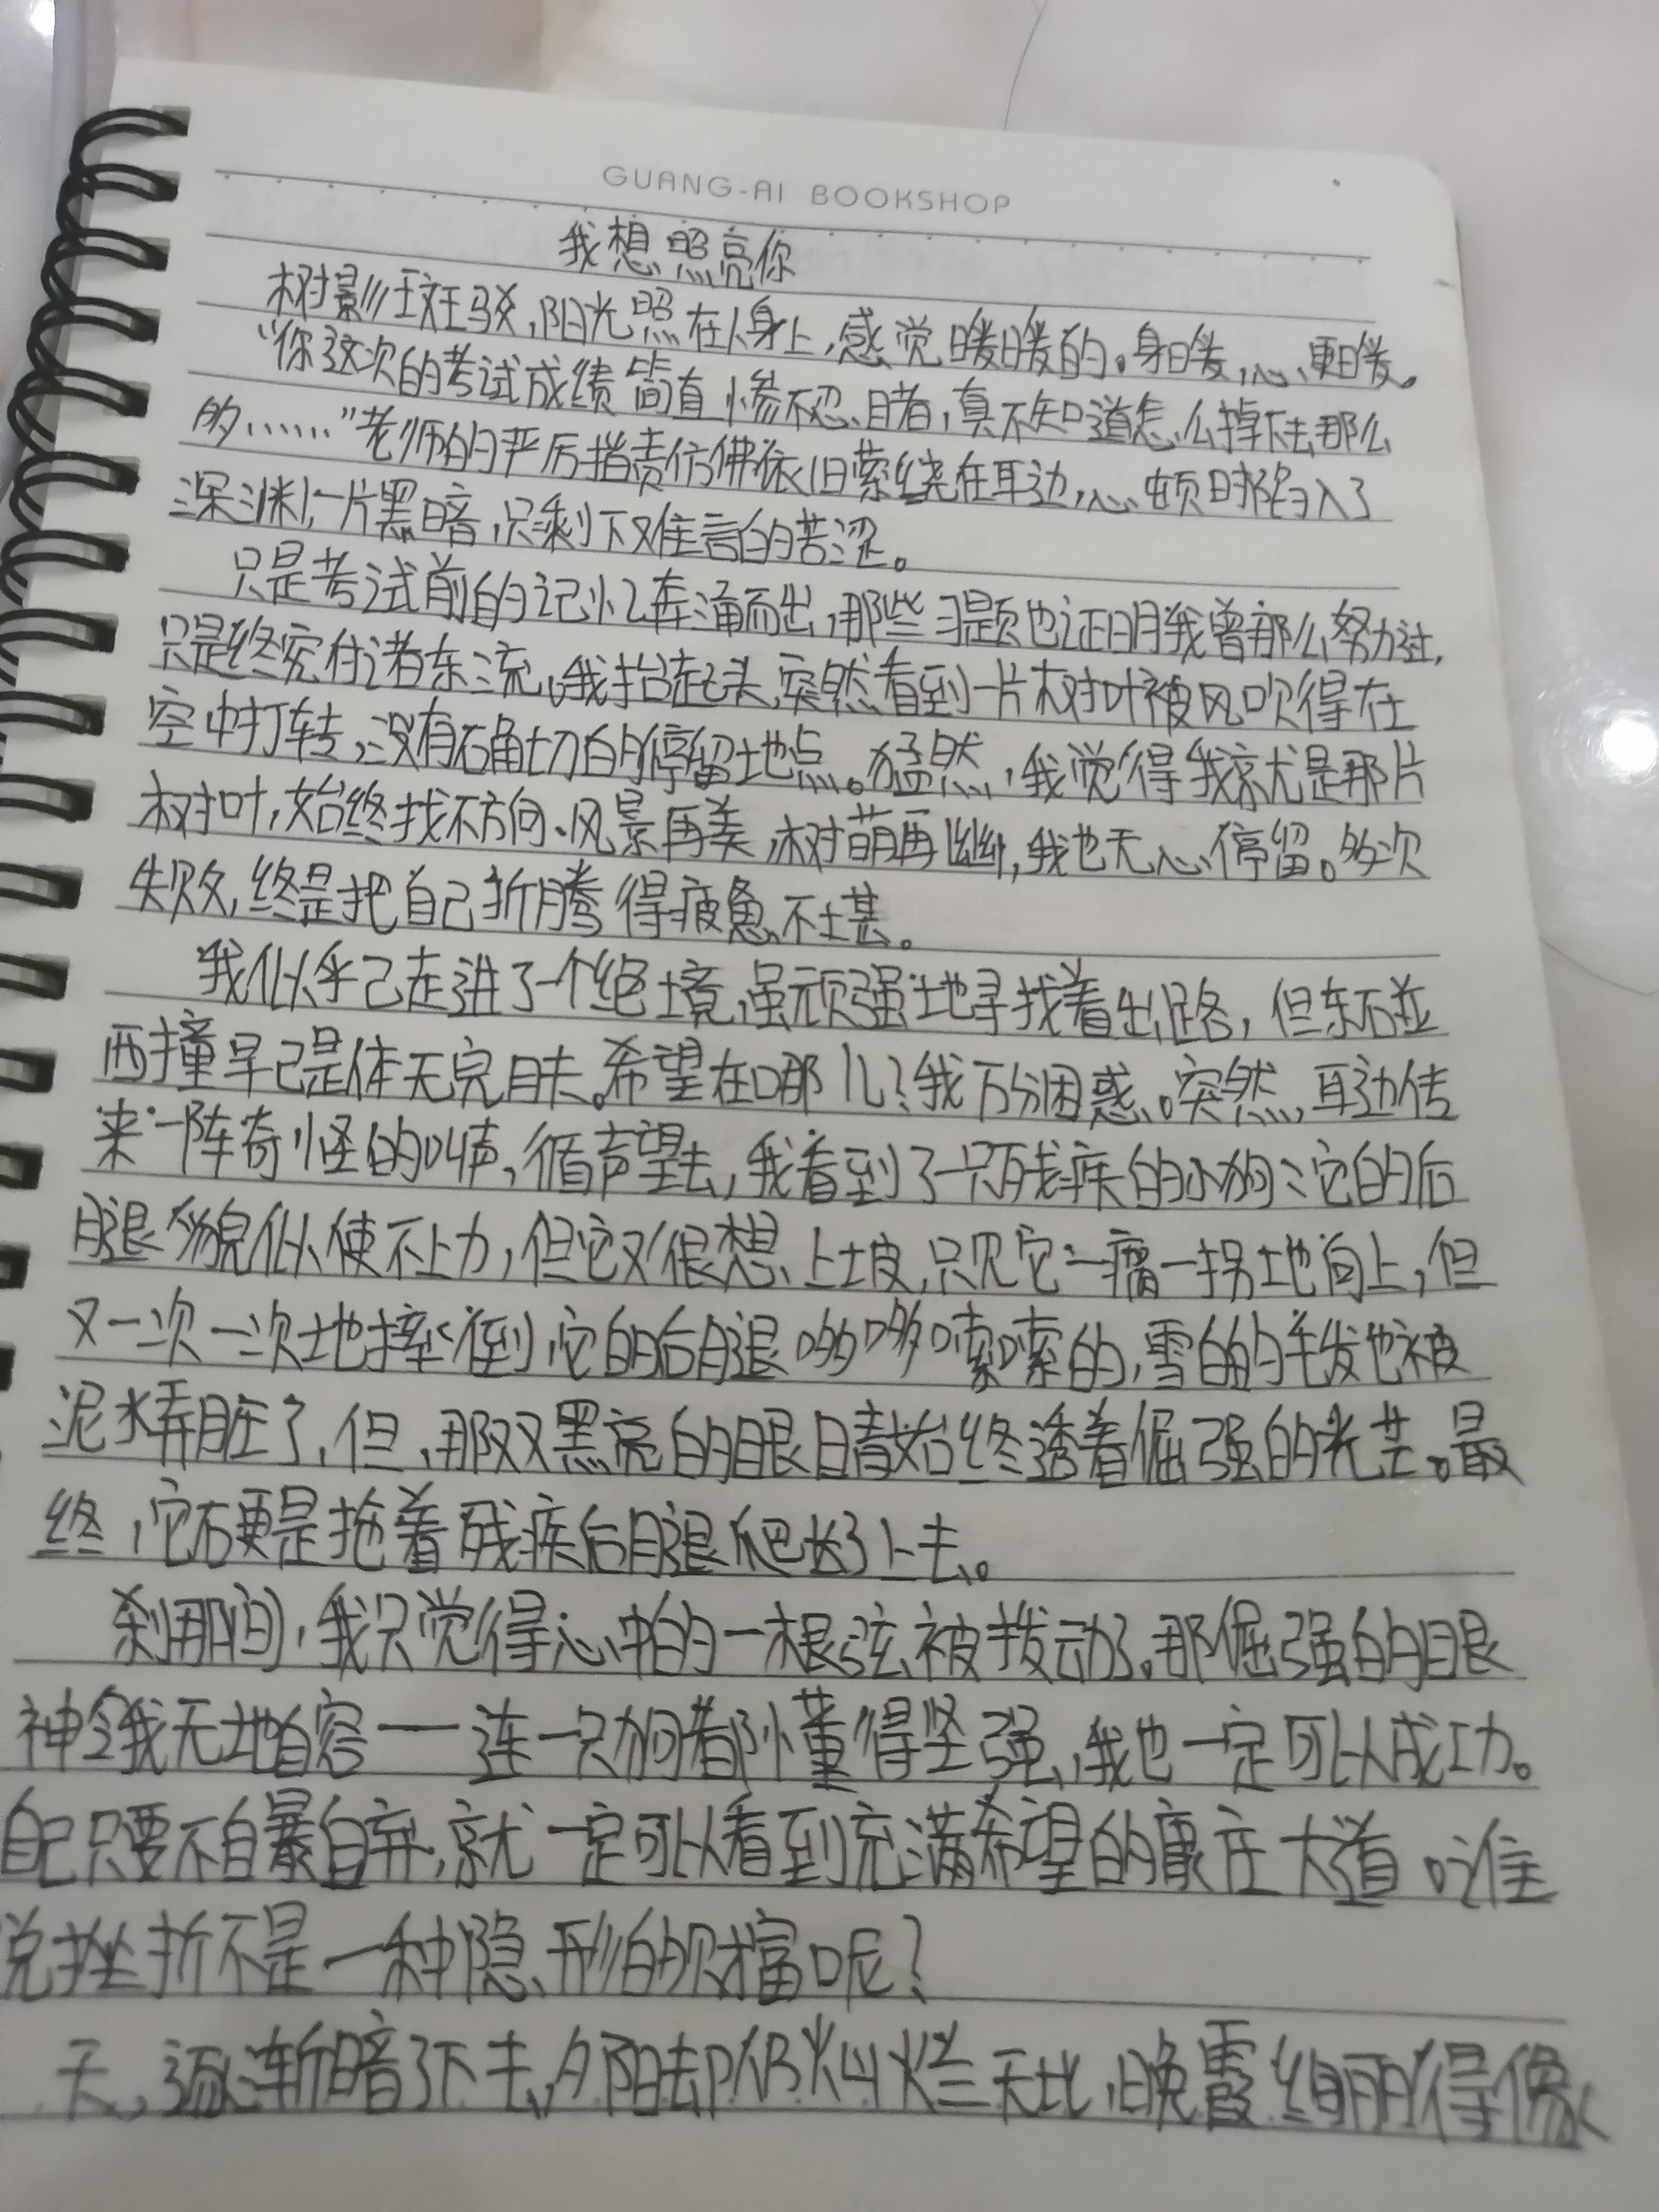 GUANG-AI BOOKSHOP
我想照亮你
树影斑驳,阳光照在身上,感觉暖暖的。身暖,心更暖。
“你这次的考试成绩简直惨不忍睹,真不知道怎么掉下去那么
多……”老师的严厉指责仿佛依旧萦绕在耳边,心顿时陷入了
深渊,一片黑暗,只剩下难言的苦涩。
只是考试前的记忆奔涌而出,那些习题也证明我曾那么努力过,
只是终究付诸东流。我抬起头,突然看到一片树叶被风吹得在
空中打转,没有确切的停留地点。猛然,我觉得我就是那片
树叶,始终找不方向、风景再美,树萌再幽,我也无心停留。多次
失败,终是把自己折腾得疲惫不堪。
我似乎已走进了一个绝境,虽顽强地寻找着出路,但东碰
西撞早已是体无完肤。希望在哪儿?我万分困惑。突然,耳边传
来一阵奇怪的叫声,循声望去,我看到了一只残疾的小狗:它的后
腿貌似使不上力,但它又很想上坡,只见它一瘸一拐地向上,但
又一次一次地摔倒,它的后腿哆哆嗦嗦的,雪白的毛发也被
泥水弄脏了,但,那双黑亮的眼睛始终透着倔强的光芒。最
终,它硬是拖着残疾后腿爬了上去。
刹那间,我只觉得心中的一根弦被拨动了。那倔强的眼
神令我无地自容——连一只狗都懂得坚强,我也一定可以成功。
自己只要不自暴自弃,就一定可以看到充满希望的康庄大道。谁
说挫折不是一种隐形的财富呢?
天,逐渐暗了下去,夕阳却仍灿烂无比,晚霞绚丽得像